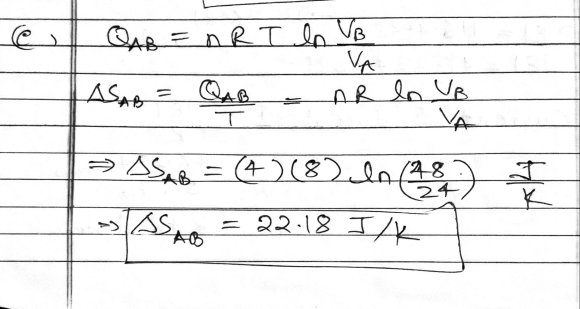 e) Q_AB = nRT ln V_B/V_A
ΔS_AB = Q_AB/T = nR ln V_B/V_A
⇒ ΔS_AB = (4)(8) ln(48/24) J/K
⇒ ΔS_AB = 22.18 J/K